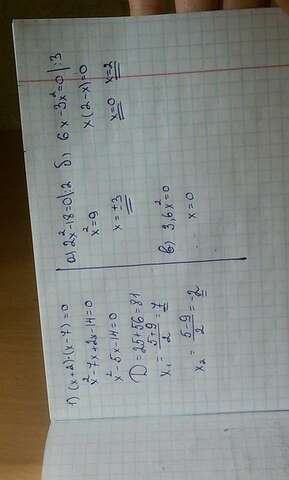 1) (x+2)·(x-7)=0
x²-7x+2x-14=0
x²-5x-14=0
D=25+56=81
x₁ = (5+9)/2 = 7
x₂ = (5-9)/2 = -2
а) 2x²-18=0 |:2
x²=9
x=±3
б) 6x-3x²=0 |:3
x(2-x)=0
x=0 x=2
в) 3,6x²=0
x=0